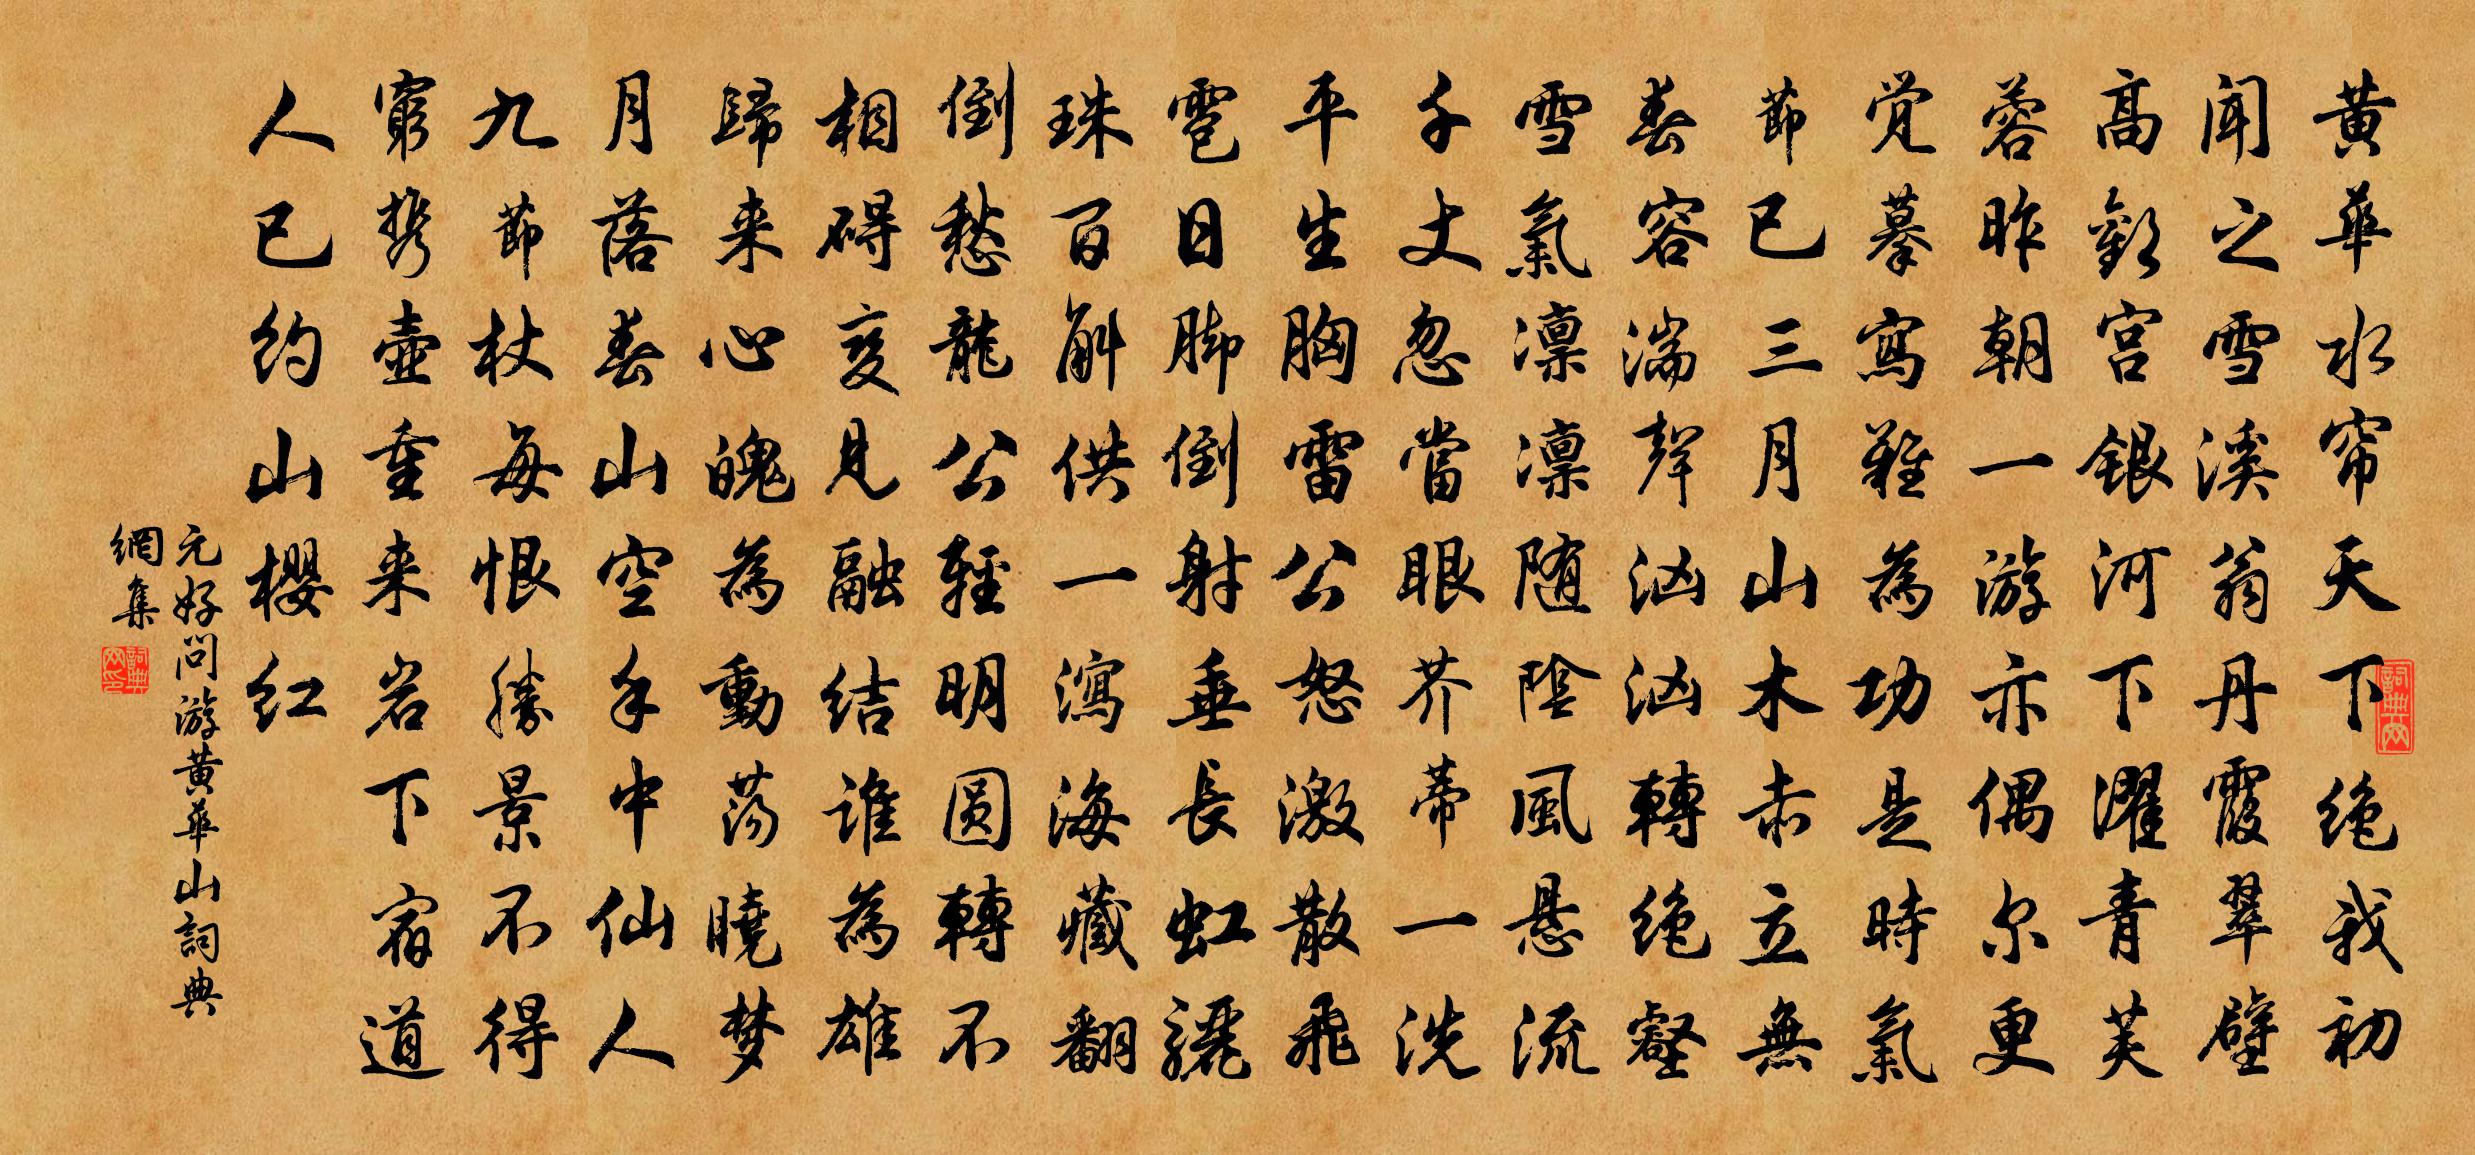 黄華水帘天下絶我初
闻之雪溪翁丹霞翠壁
高歡宫銀河下濯青芙
蓉昨朝一游亦偶尔更
覚摹寫難為功是時氣
節已三月山木赤立無
春容湍聲汹汹轉絶壑
雪氣凛凛随陰風悬流
千丈忽當眼芥蒂一洗
平生胸雷公怒激散飛
雹日脚倒射垂長虹驪
珠百斛供一瀉海藏翻
倒愁龍公輕明圆轉不
相碍変見融结谁為雄
歸来心魄為動荡曉梦
月落春山空手中仙人
九節杖每恨勝景不得
窮携壺重来岩下宿道
人已约山櫻红
元好问游黄華山詞典
網集
詞典网
詞典网印